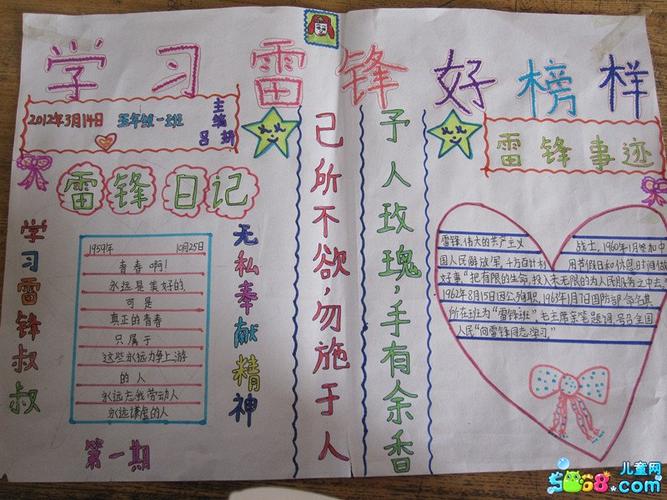 学习雷锋好榜样
2012年3月14日 五年级一班
主编
吕妍
雷锋日记
学习雷锋叔叔
1959年 10月25日
青春啊!
永远是美好的,
可是
真正的青春
只属于
这些永远力争上游
的人
永远忘我劳动人
永远谦虚的人
无私奉献精神
第一期
己所不欲,勿施于人
予人玫瑰,手有余香
雷锋事迹
雷锋,伟大的共产主义 战士,1960年1月参加中
国人民解放军,千方百计利 用节假日和休息时间做
好事."把有限的生命,投入末无限的为人民服务之中去.
1962年8月15日因公殉职,1963年1月7日国防部命名其
所在班为"雷锋班".毛主席亲笔题词,号召全国
人民"向雷锋同志学习."
儿童网
5068.com